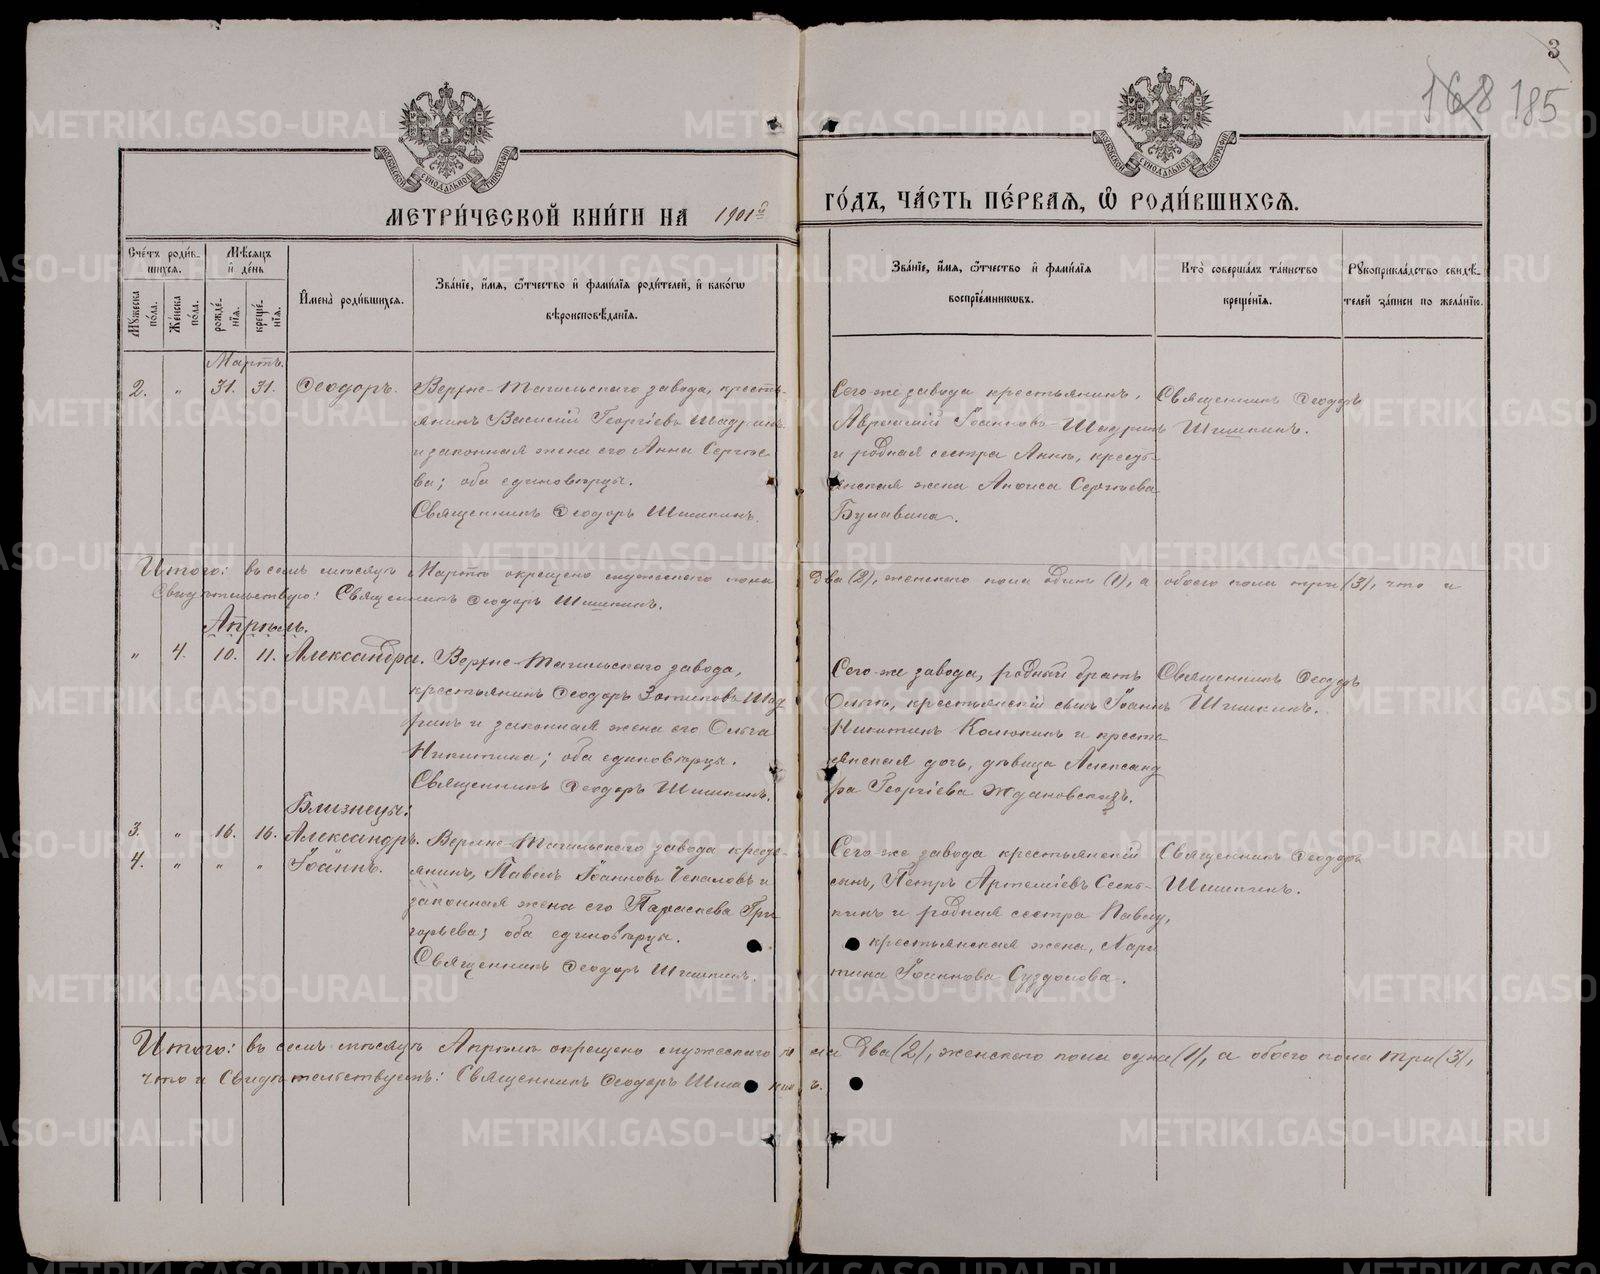 3
168 185
МОСКОВСКОЙ СѴНОДАЛЬНОЙ ТИПОГРАФІИ
МОСКОВСКОЙ СѴНОДАЛЬНОЙ ТИПОГРАФІИ
МЕТРИ́ЧЕСКОЙ КНИ́ГИ НА 1901й
ГО́ДЪ, ЧА́СТЬ ПЕ́РВАѦ, Ѽ РОДИ́ВШИХСѦ.
Сче́тъ роди́в-
шихсѧ.
Мѣ́сѧцъ
и҆ де́нь
Мꙋ́жеска
по́ла.
Же́нска
по́ла.
рожде́-
нїѧ.
креще́-
нїѧ.
И҆мена̀ роди́вшихсѧ.
Зва́нїе, и҆́мѧ, ѻ҆́тчество и҆ фами́лїѧ роди́телей, и҆ како́гѡ
вѣроисповѣ́данїѧ.
Зва́нїе, и҆́мѧ, ѻ҆́тчество и҆ фами́лїѧ
воспрїе́мникѡвъ.
Кто̀ соверша́лъ та́инство
креще́нїѧ.
Рꙋкоприкла́дство свидѣ́-
телей за́писи по жела́нїю.
Мартъ.
2. " 31. 31. Ѳеодоръ.
Верхне-Тагильскаго завода, кресть-
янинъ Василій Георгіевъ Шадринъ
и законная жена его Анна Сергѣе-
ва; оба единовѣрцы.
Священникъ Ѳеодоръ Шишкинъ.
Сего-же завода крестьянинъ,
Аврамій Іоанновъ Шадринъ
и родная сестра Анны, кресть-
янская жена Анѳиса Сергѣева
Булавина.
Священникъ Ѳеодоръ
Шишкинъ.
Итого: въ семъ мѣсяцѣ Мартѣ окрещено мужескаго пола два (2), женскаго пола одинъ (1), а обоего пола три (3), что и
Свидѣтельствую: Священникъ Ѳеодоръ Шишкинъ.
Апрѣль.
" 4. 10. 11. Александра.
Верхне-Тагильскаго завода,
крестьянинъ Ѳеодоръ Зотиковъ Шад-
ринъ и законная жена его Ольга
Никитина; оба единовѣрцы.
Священникъ Ѳеодоръ Шишкинъ.
Сего-же завода, родный братъ
Ольги, крестьянскій сынъ Іоаннъ
Никитинъ Колюкинъ и кресть-
янская дочь, дѣвица Александ-
ра Георгіева Ждановскихъ.
Священникъ Ѳеодоръ
Шишкинъ.
Близнецы:
3. " 16. 16. Александръ.
4. " " " Іоаннъ.
Верхне-Тагильскаго завода кресть-
янинъ, Павелъ Іоанновъ Чекаловъ и
законная жена его Параскева Гри-
горьева; оба единовѣрцы.
Священникъ Ѳеодоръ Шишкинъ.
Сего-же завода крестьянскій
сынъ, Петръ Артеміевъ Сесь-
кинъ и родная сестра Павлу,
крестьянская жена, Хари-
тина Іоаннова Суздолова.
Священникъ Ѳеодоръ
Шишкинъ.
Итого: въ семъ мѣсяцѣ Апрѣлѣ окрещено мужескаго пола два (2), женскаго пола одна (1), а обоего пола три (3),
что и Свидѣтельствуетъ: Священникъ Ѳеодоръ Шишкинъ.
METRIKI.GASO-URAL.RU